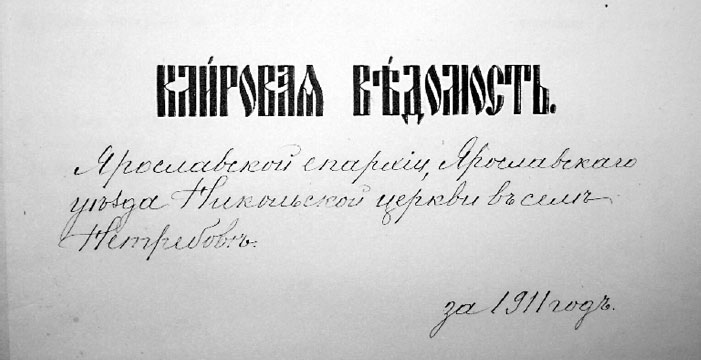 КЛИ́РОВАЯ ВѢ́ДОМОСТЬ.
Ярославской епархіи, Ярославскаго
уѣзда Никольской церкви въ селѣ
Нетребовѣ.
за 1911 годъ.